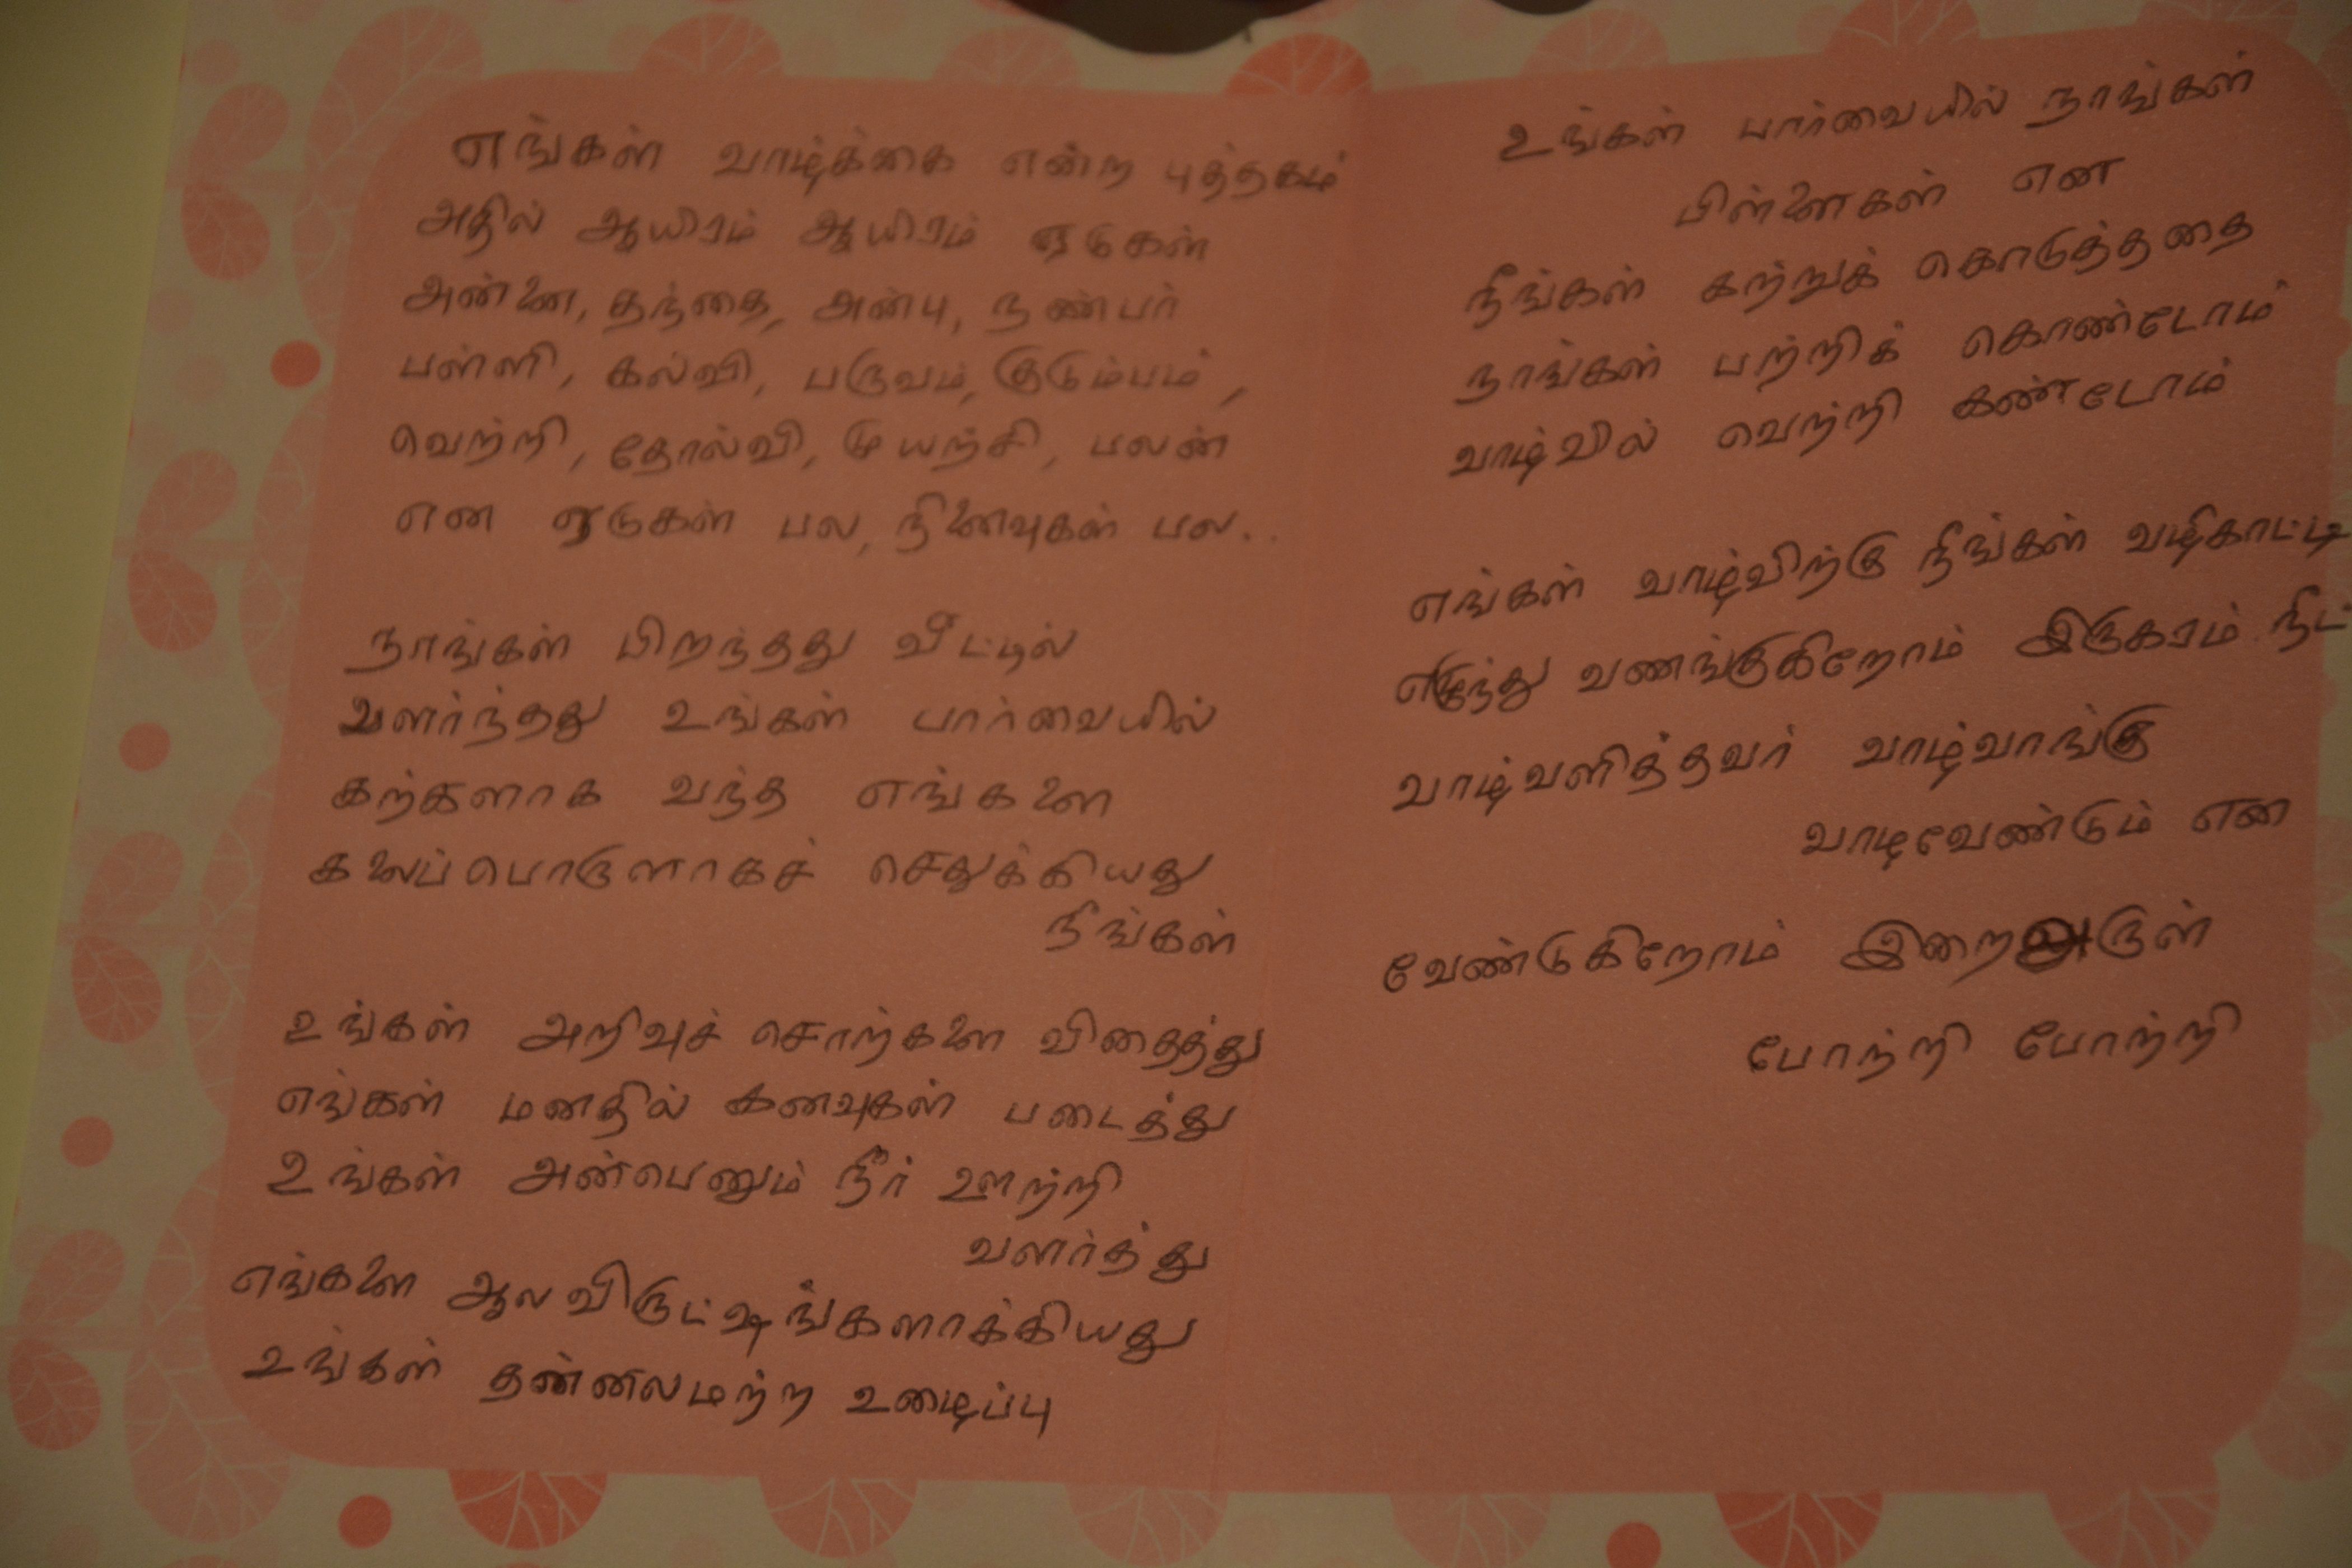 எங்கள் வாழ்க்கை என்ற புத்தகம்
அதில் ஆயிரம் ஆயிரம் ஏடுகள்
அன்னை, தந்தை, அன்பு, நண்பர்
பள்ளி, கல்வி, பருவம், குடும்பம்,
வெற்றி, தோல்வி, முயற்சி, பலன்
என ஏடுகள் பல, நினைவுகள் பல..
நாங்கள் பிறந்தது வீட்டில்
வளர்ந்தது உங்கள் பார்வையில்
கற்களாக வந்த எங்களை
கலைப்பொருளாகச் செதுக்கியது
நீங்கள்
உங்கள் அறிவுச் சொற்களை விதைத்து
எங்கள் மனதில் கனவுகள் படைத்து
உங்கள் அன்பெனும் நீர் ஊற்றி
வளர்த்து
எங்களை ஆலவிருட்ஷங்களாக்கியது
உங்கள் தன்னலமற்ற உழைப்பு
உங்கள் பார்வையில் நாங்கள்
பிள்ளைகள் என
நீங்கள் கற்றுக் கொடுத்ததை
நாங்கள் பற்றிக் கொண்டோம்
வாழ்வில் வெற்றி கண்டோம்
எங்கள் வாழ்விற்கு நீங்கள் வழிகாட்டி
எழுந்து வணங்குகிறோம் இருகரம் நீட்
வாழ்வளித்தவர் வாழ்வாங்கு
வாழவேண்டும் என
வேண்டுகிறோம் இறைஅருள்
போற்றி போற்றி